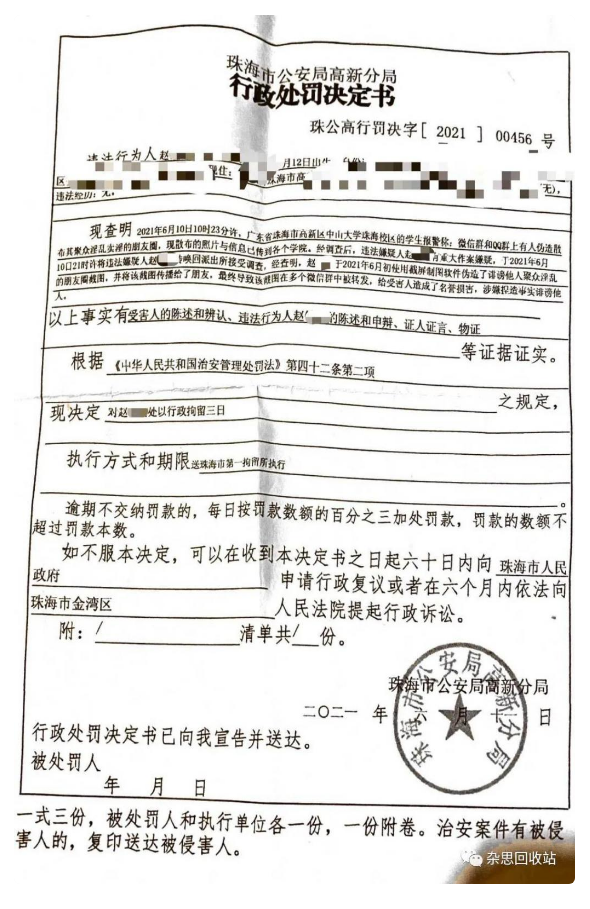 珠海市公安局高新分局
行政处罚决定书
珠公高行罚决字[ 2021 ] 00456 号
违法行为人赵
月12日出生
区 现住: 珠海市高
违法经历:无, 无),
现查明 2021年6月10日10时23分许,广东省珠海市高新区中山大学珠海校区的学生报警称:微信群和QQ群上有人伪造散
布其聚众淫乱卖淫的朋友圈,现散布的照片与信息已传到各个学院。经调查后,违法嫌疑人赵 有重大作案嫌疑,于2021年6月
10日21时许将违法嫌疑人赵 传唤回派出所接受调查,经查明,赵 于2021年6月初使用截屏制图软件伪造了诽谤他人聚众淫乱
的朋友圈截图,并将该截图传播给了朋友,最终导致该截图在多个微信群中被转发,给受害人造成了名誉损害,涉嫌捏造事实诽谤他
人。
以上事实有受害人的陈述和辨认、违法行为人赵 的陈述和申辩、证人证言、物证
等证据证实。
根据 《中华人民共和国治安管理处罚法》第四十二条第二项
之规定,
现决定 对赵 处以行政拘留三日
执行方式和期限送珠海市第一拘留所执行
。
逾期不交纳罚款的,每日按罚款数额的百分之三加处罚款,罚款的数额不
超过罚款本数。
如不服本决定,可以在收到本决定书之日起六十日内向 珠海市人民
政府 申请行政复议或者在六个月内依法向
珠海市金湾区 人民法院提起行政诉讼。
附:/ 清单共/ 份。
珠海市公安局高新分局
二〇二一 年 六 月 十 日
珠海市公安局高新分局
行政处罚决定书已向我宣告并送达。
被处罚人
年 月 日
一式三份,被处罚人和执行单位各一份,一份附卷。治安案件有被侵
害人的,复印送达被侵害人。
杂思回收站